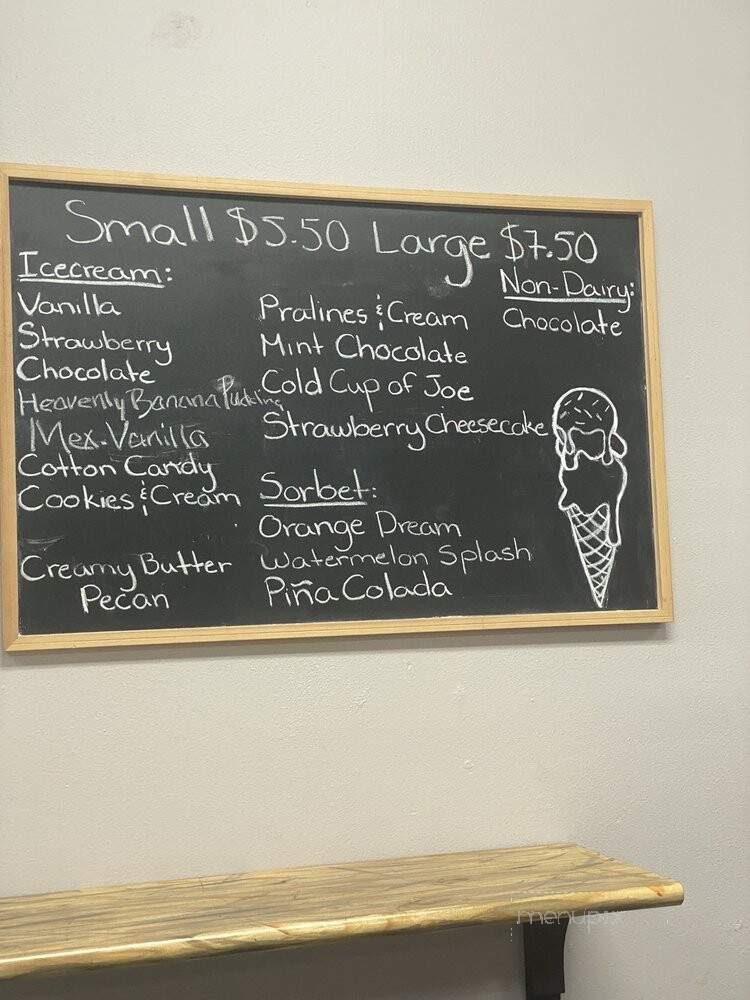 Small $5.50 Large $7.50
Icecream:
Vanilla
Strawberry
Chocolate
Heavenly Banana Pudding
Mex. Vanilla
Cotton Candy
Cookies & Cream
Creamy Butter
Pecan
Pralines & Cream
Mint Chocolate
Cold Cup of Joe
Strawberry Cheesecake
Sorbet:
Orange Dream
Watermelon Splash
Piña Colada
Non-Dairy:
Chocolate